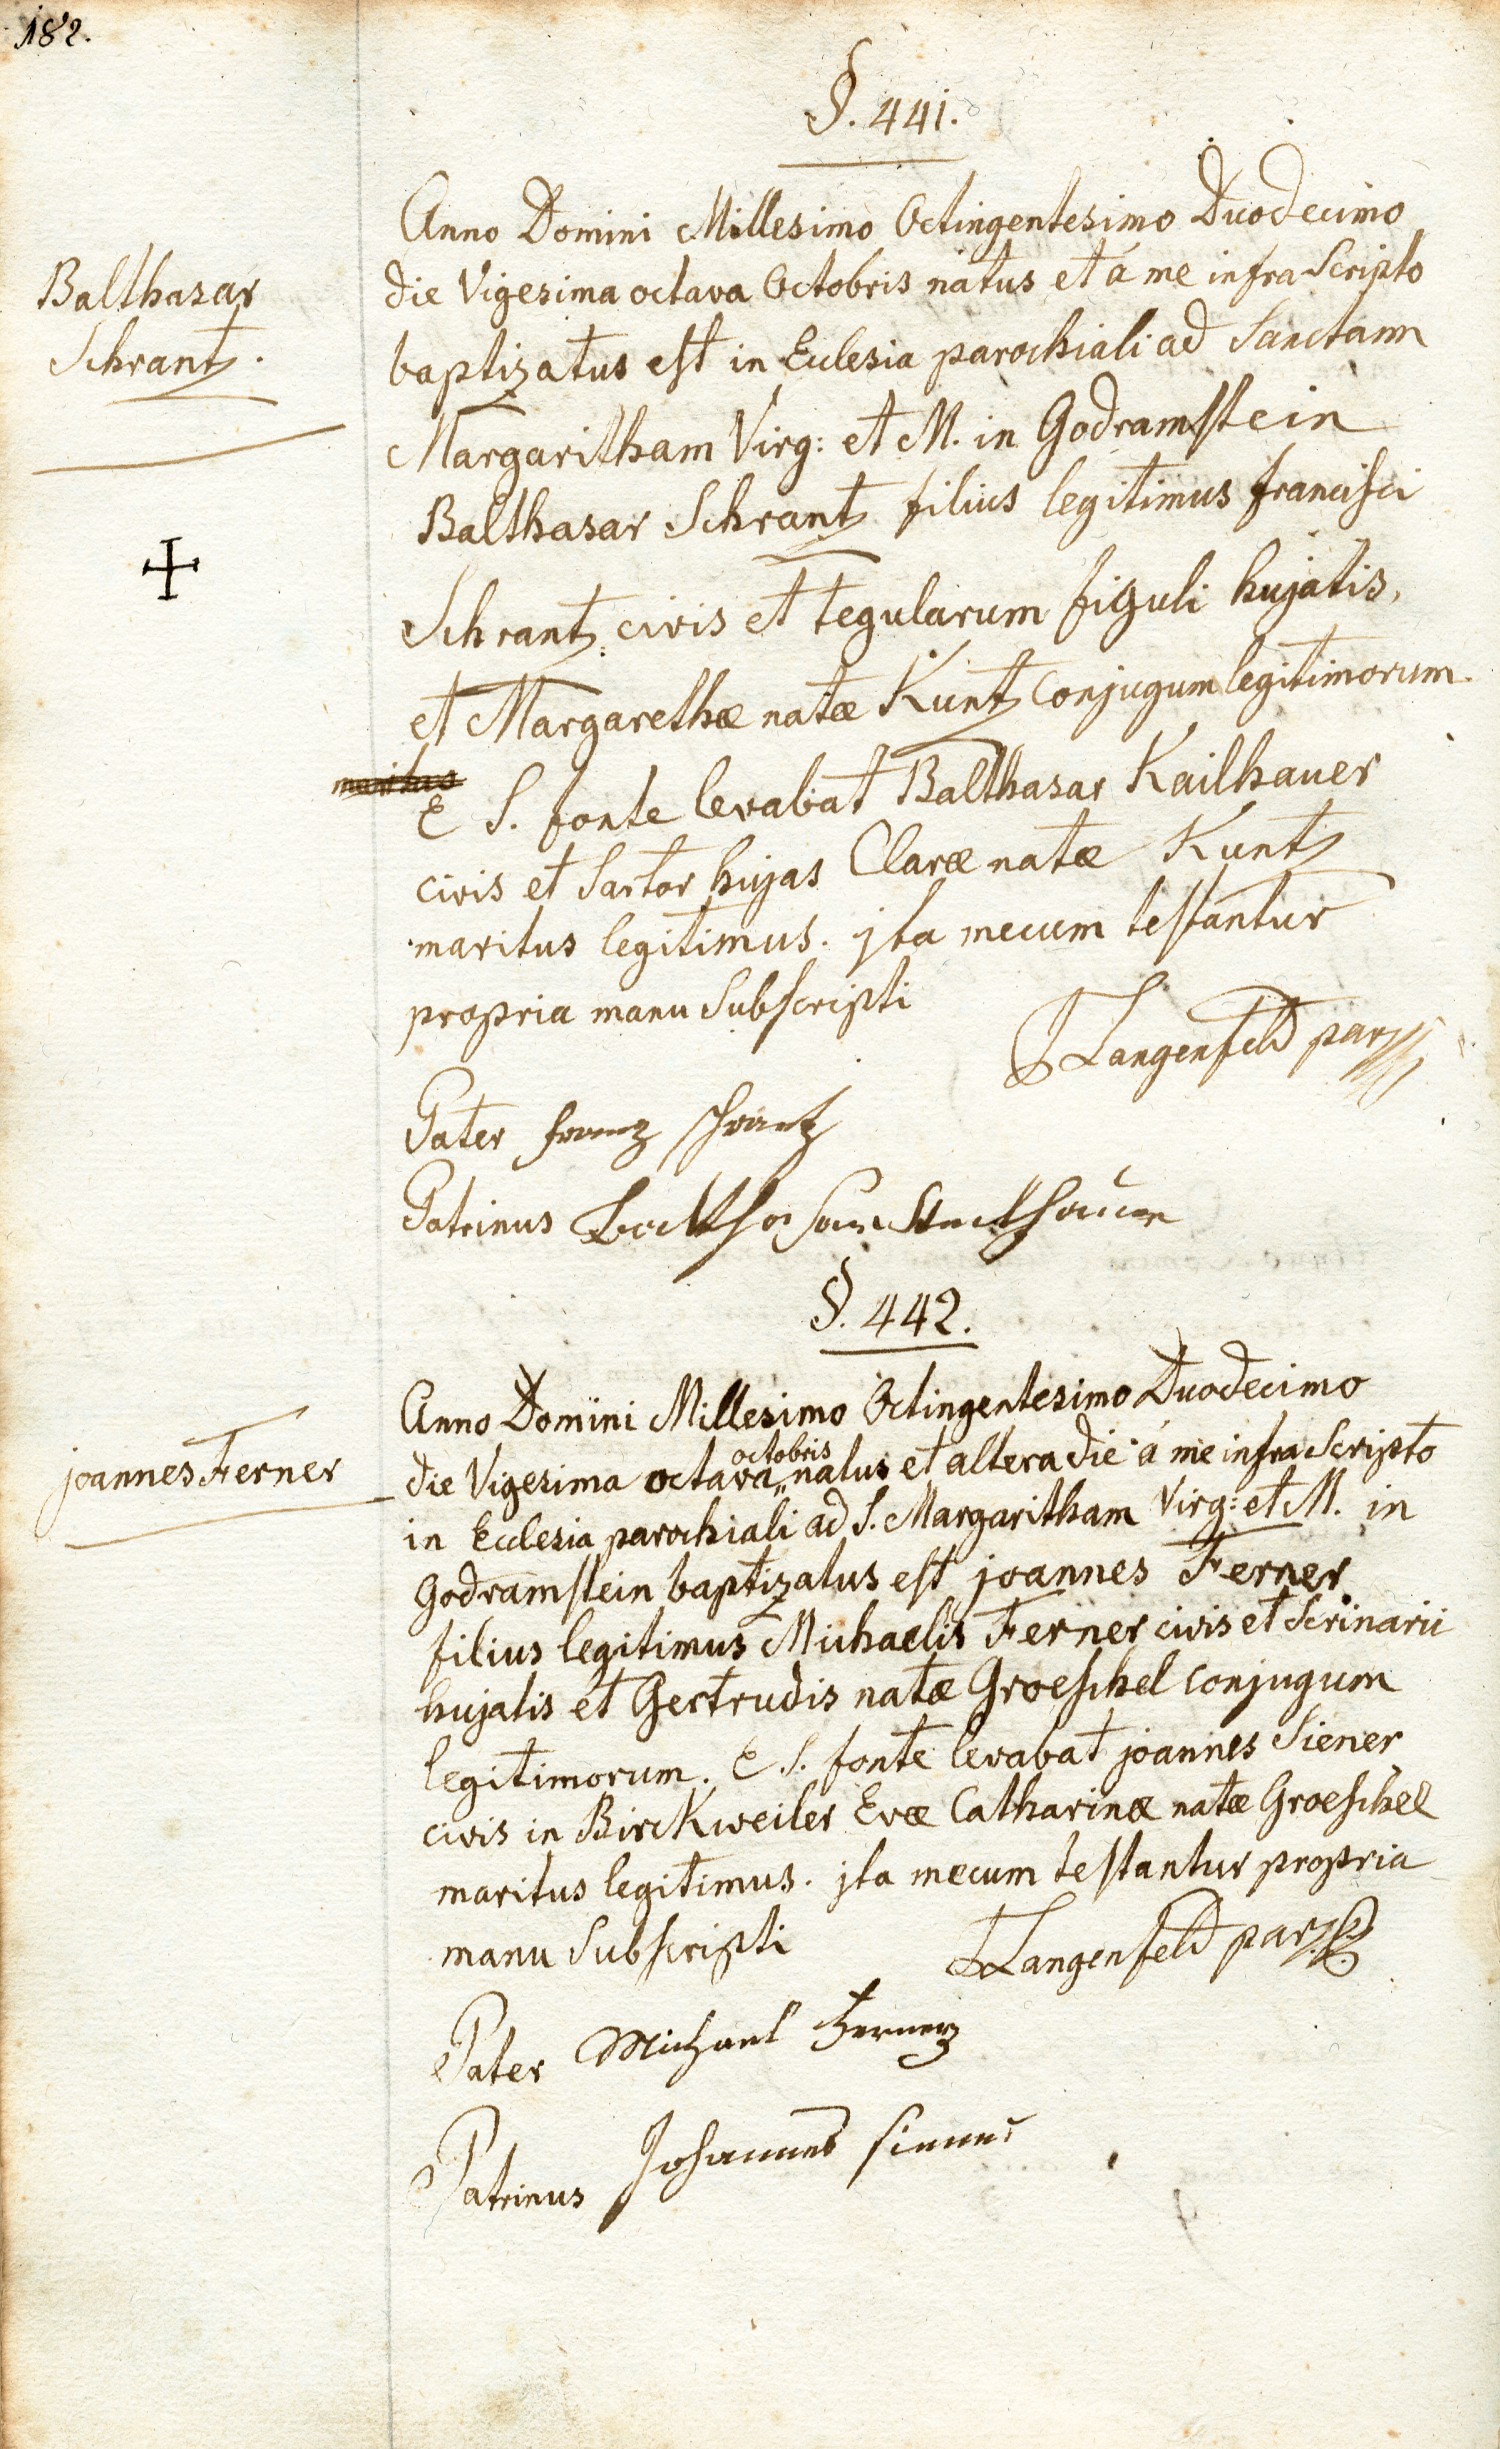 182.
§. 441.
Anno Domini Millesimo Octingentesimo Duodecimo
Balthasar
Schrantz.
die Vigesima octava Octobris natus et á me infra Scripto
baptizatus est in Ecclesia parochiali ad Sanctam
Margaritham Virg: et M. in Godramstein
Balthasar Schrantz filius legitimus francisci
Schrantz civis et tegularum figuli hujatis,
et Margarethæ natæ Kuntz Conjugum legitimorum.
maritus
E S. fonte levabat Balthasar Kailhauer
civis et Sartor hujas Claræ natæ Kuntz
maritus legitimus. jta mecum testantur
propria manu Subscripti
Langenfeld par
Pater franz schrantz
Patrinus
§. 442.
Anno Domini Millesimo Octingentesimo Duodecimo
joannes Ferner
octobris
die Vigesima octava natus et altera die á me infra Scripto
in Ecclesia parochiali ad S. Margaritham Virg: et M. in
Godramstein baptizatus est joannes Ferner
filius legitimus Michaelis Ferner civis et Scrinarii
hujatis et Gertrudis natæ Groeschel conjugum
legitimorum. E S. fonte levabat joannes Siener
civis in Birckweiler Evæ Catharinæ natæ Groeschel
maritus legitimus. jta mecum testantur propria
manu Subscripti
Langenfeld par
Pater Michael
Patrinus Johannes siener